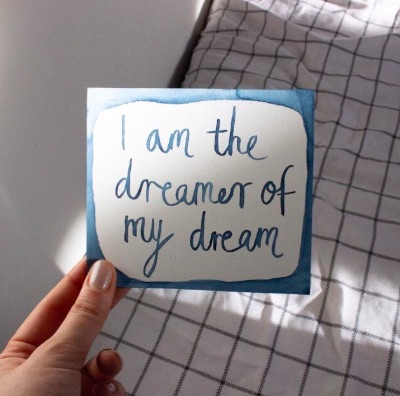 I am the
dreamer of
my dream